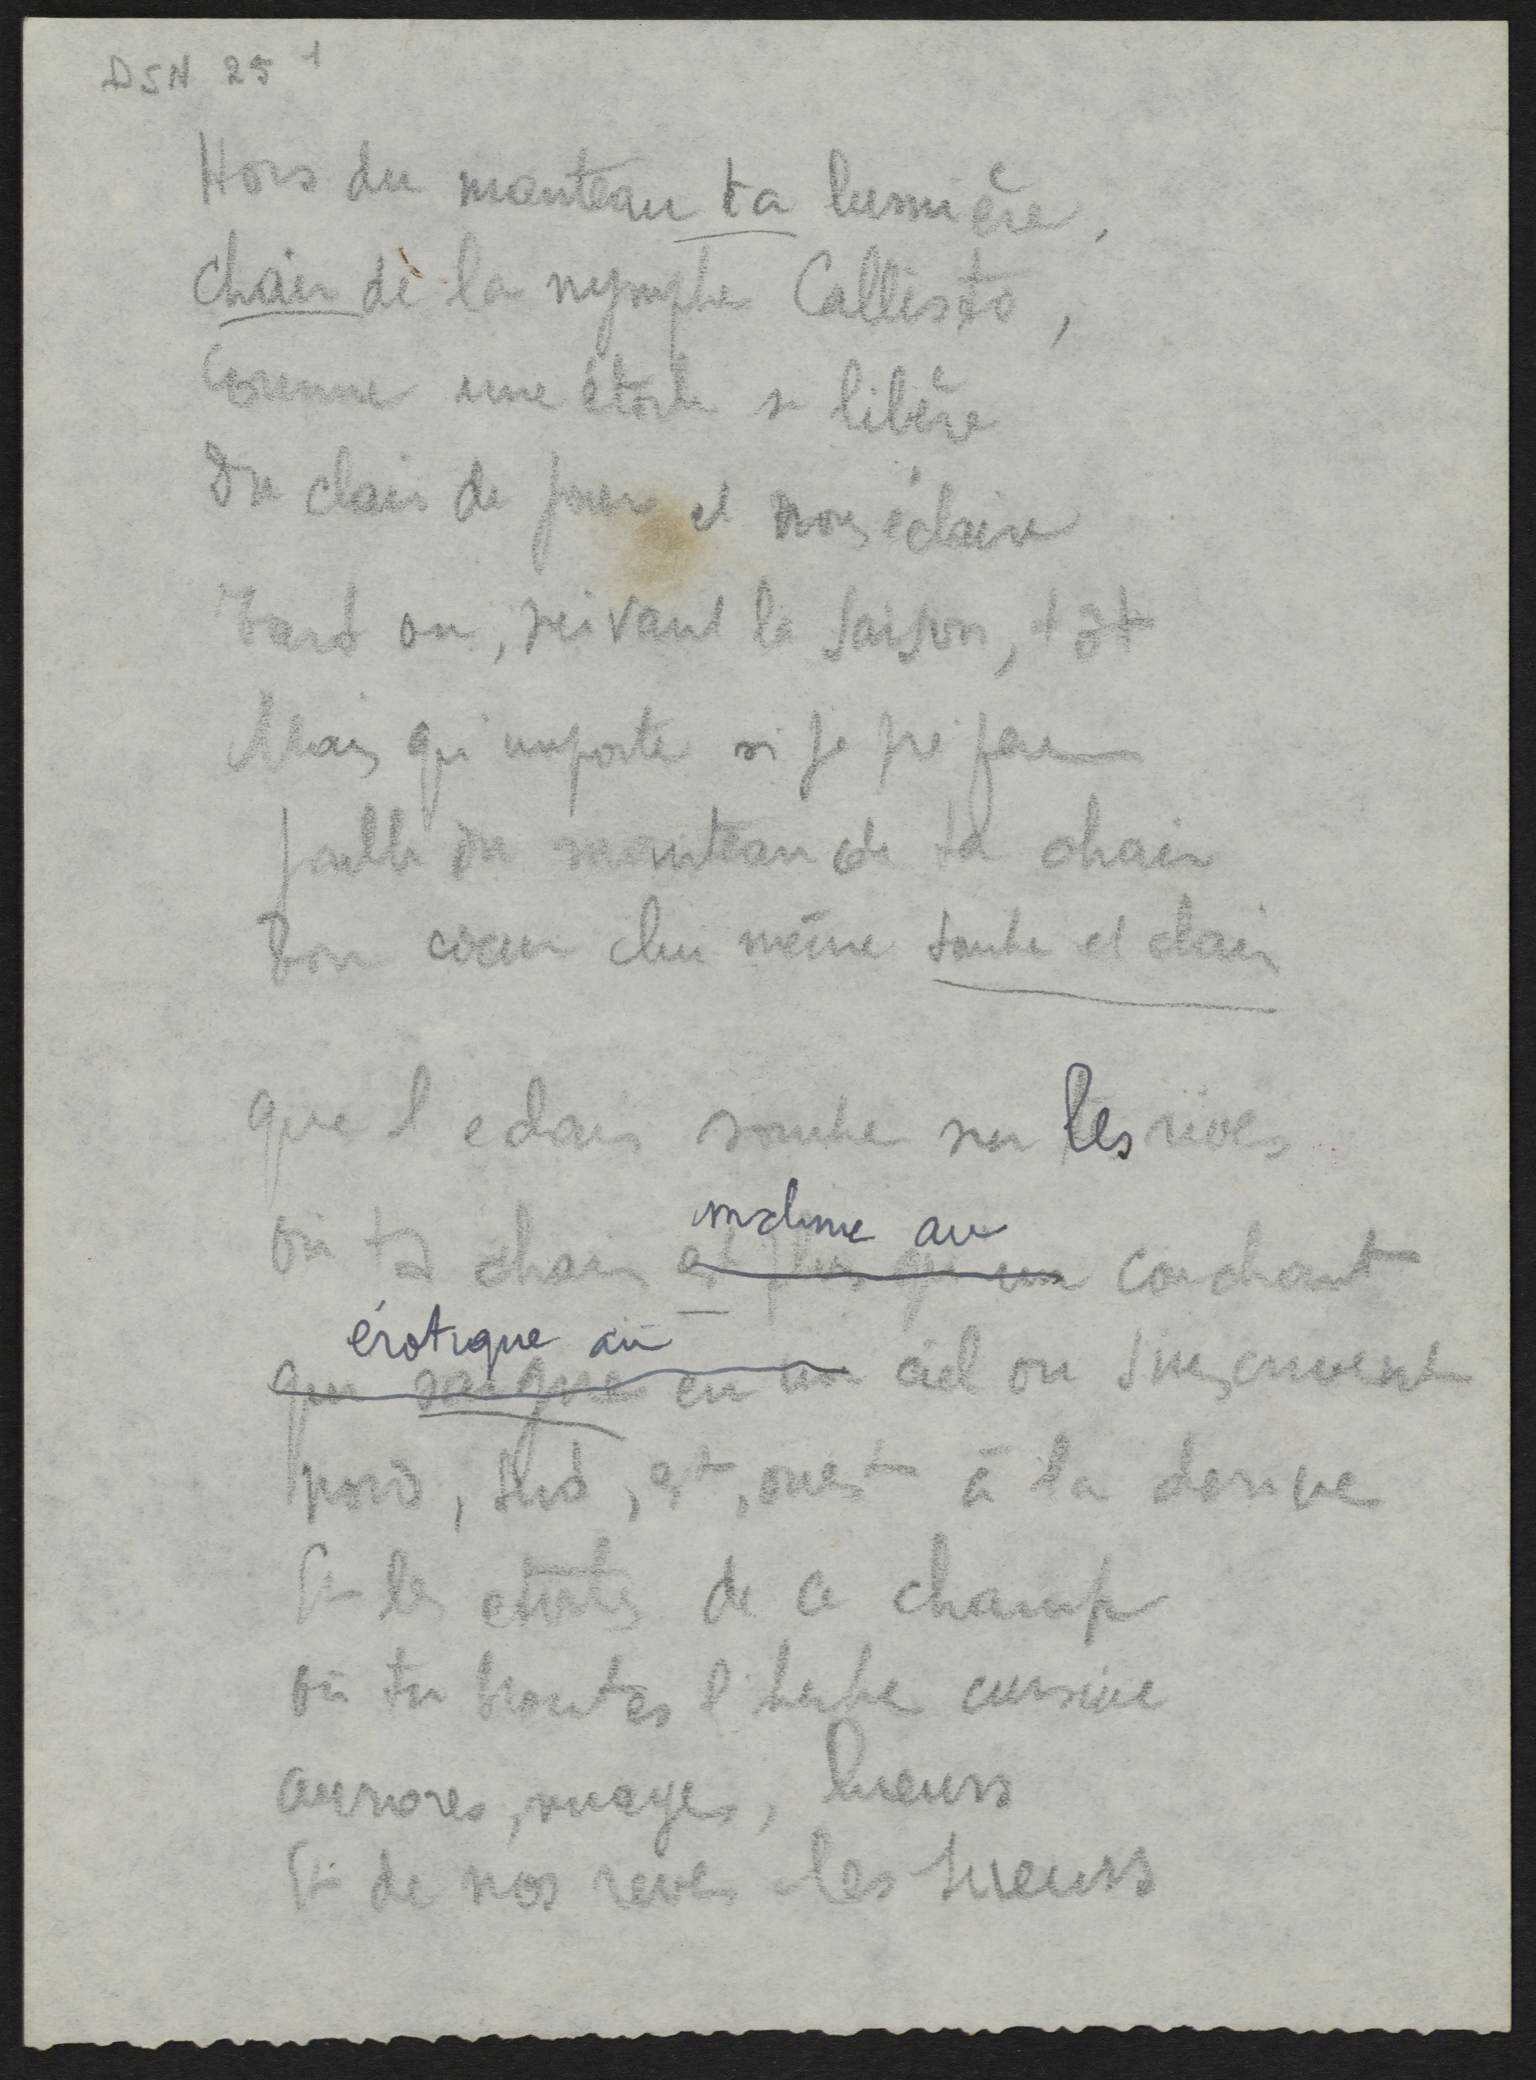 DSN 25 1
Hors du manteau ta lumière,
chair de la nymphe Callisto,
Comme une étoile se libère
Du clair de jour et nous éclaire
Tard ou, suivant la saison, tôt
Mais qu'importe si je préfère
faille du manteau de ta chair
Ton cœur lui même sombre et clair
que l eclair sombre sur les rives
incline au
où ta chair est plus qu'un couchant
érotique au
qui saigne en un ciel ou s'inscrivent
nord, sud, est, ouest à la derive
Et les étoiles de ce champ
où tu broutes l'herbe cursive
aurores, nuages, lueurs
Et de nos reves les sueurs